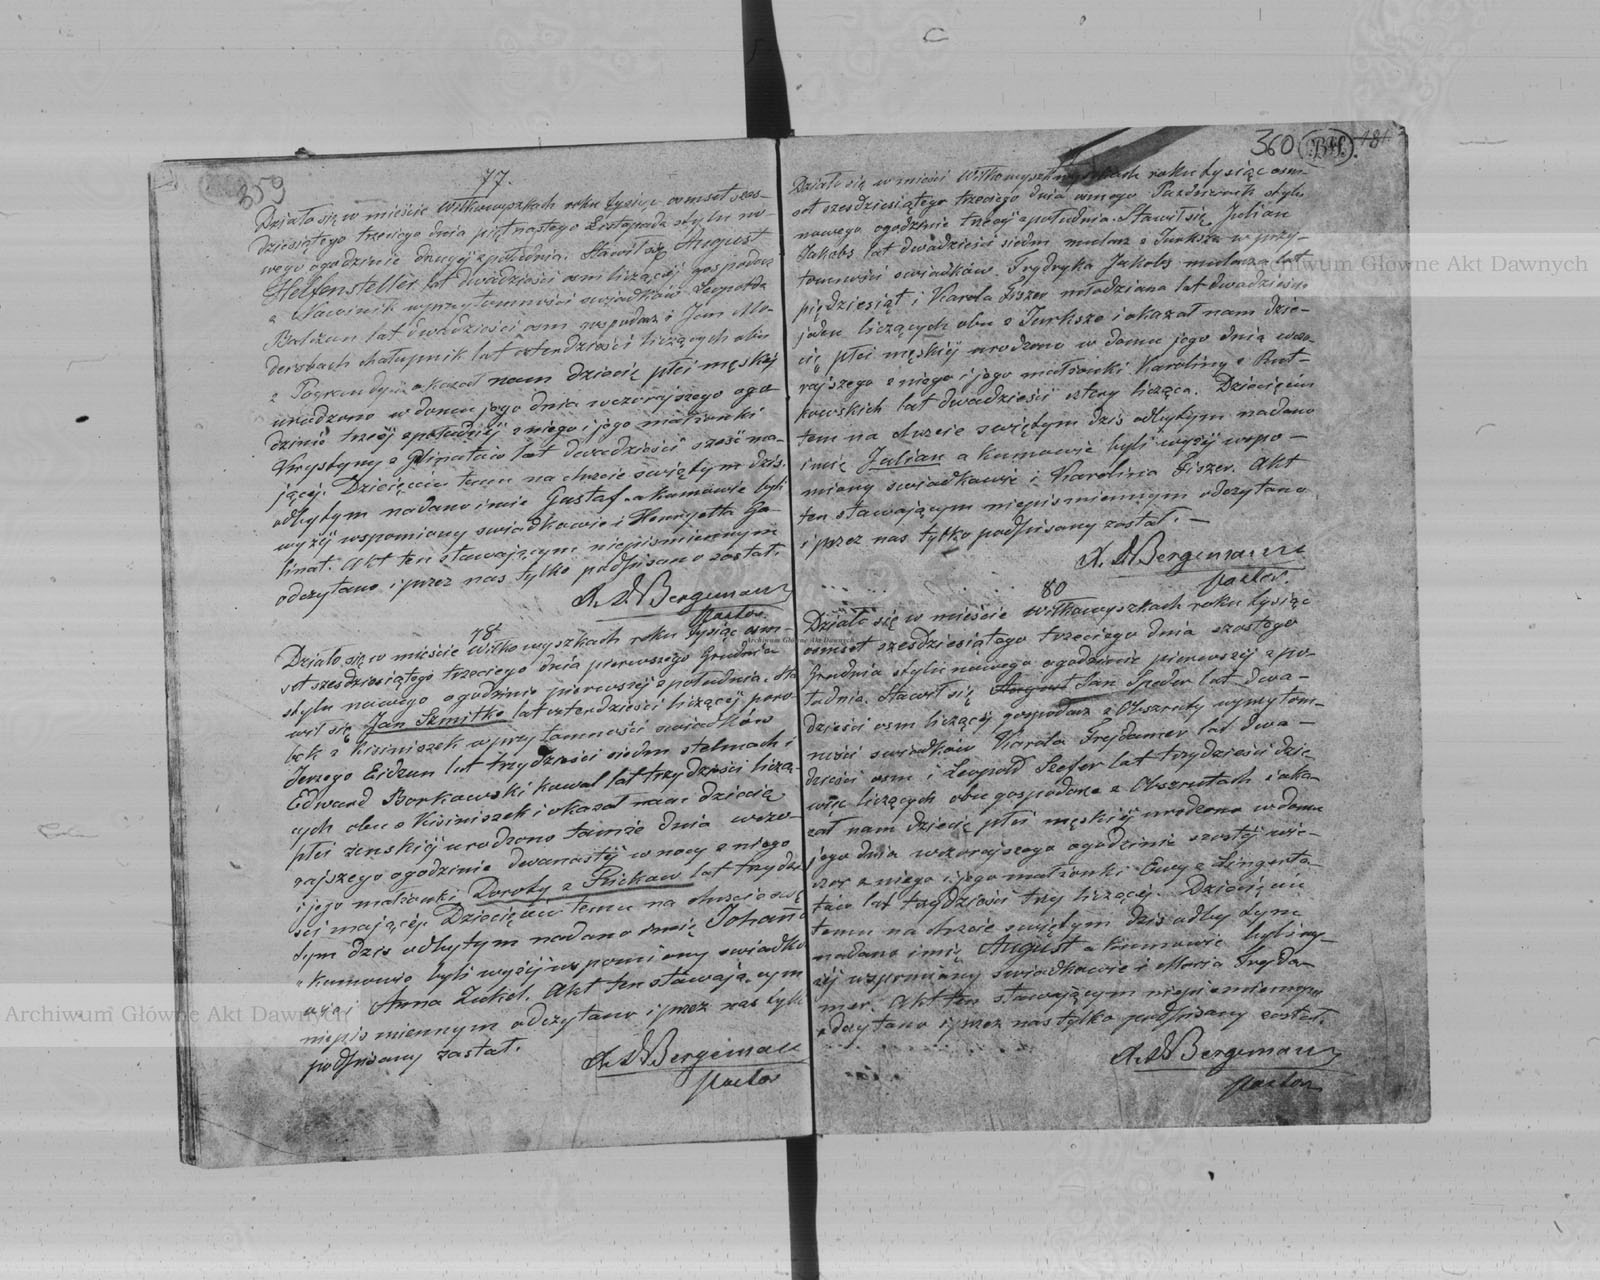 359
77.
Działo się w mieście Wiłkowyszkach roku tysiąc osmset szes-
dziesiątego trzeciego dnia piętnastego Listopada stylu no-
wego ogodzinie drugiéj z południa. Stawił się August
Helfensteller lat dwadzieścia osm liczącéj gospodarz
z w przytomności swiadków Leopolda
lat dwadzieści osm gospodarz i Jan Mo-
derzbach chałupnik lat czterdzieści liczących obu
z okazał nam dziecię płci męskiéj
urodzone w domu jego dnia wczorajszego ogo-
dzinie trzeciéj z południa z niego i jego małżonki
Krystyny z lat dwadzieści szesć ma-
jącéj. Dziecięciu temu na chrzcie swiętym dzis
odbytym nadano imie Gustaf, a kumowie byli
wyzéj wspomniony swiadkowie i Henryetta Ga-
linat. Akt ten stawającym niepismiennym
odczytano i przez nas tylko podpisano został.
A. W Bergemann
Pastor
78
Działo się w mieście Wiłkowyszkach roku tysiąc osm-
set szesdziesiątego trzeciego dnia pierwszego Grudnia
stylu nowego ogodzinie pierwszéj z południa. Sta
wił się Jan Szmitke lat czterdzieści liczącéj paro
bek z Kisiniszek w przytomności swiadków
Jerzego Eidzun lat trzydzieści siedm stelmach i
Edward Borkowski kowal lat trzydzieści liczą-
cych obu z Kisiniszek i okazał nam dziecię
płci zenskiéj urodzone tamże dnia wczo-
rajszego ogodzinie dwanastéj w nocy z niego
i jego małżonki Doroty z Rickaw lat trzydzi
ści mającéj. Dziecięciu temu na chrzcie swię
tym dzis odbytym nadano imię Johanna
a kumowie byli wyżéj wspomniony swiadko
wie i Anna Zukel. Akt ten stawającym
niepismiennym odczytano i przez nas tylko
podpisany zastał.
A. W Bergemann
Pastor
360 181
Działo się w mieści Wiłkowyszkach roku tysiąc osm-
set szesdziesiątego trzeciego dnia osmego Pazdziernik stylu
nowego ogodzinie trzecéj z południa. Stawił się Julian
Jakobs lat dwadzieści siedm mularz z Turksza w przy-
tomności swiadków Frydryka Jakobs mularza lat
pięcdziesiąt i Karola Fiszer młodziana lat dwadzieścia
jeden liczących obu z Turksze i okazał nam dzie-
cię płci męskiéj urodzone w domu jego dnia wczo-
rajszego z niego i jego małżonki Karoliny z Rut-
kowskich lat dwadzieści cztery licząca. Dziecięciu
tem na chrzcie swiętym dzis odbytym nadano
imię Julian a kumowie byli wyzéj wspo-
miony swiadkowie i Karolina Fiszer. Akt
ten stawającym niepismiennym odczytano
i przez nas tylko podpisany został. —
A. W Bergemann
Pastor.
80
Działo się w mieście Wiłkowyszkach roku tysiąc
osmset szesdziesiątego trzeciego dnia szostego
Grudnia stylu nowego ogodzinie pierwszéj z po-
łudnia. Stawił się August Jan Speder lat dwa-
dzieści osm liczącéj gospodarz z Obszruty w przytom-
ności swiadków Karola Frejdamer lat dwa-
dzieści osm i Leopold Szefer lat trzydzieści dzie-
więc liczących obu gospodarze z Obszrutach i oka-
zał nam dziecię płci męskiéj urodzone w domu
jego dnia wczorajszego ogodzinie szostéj wie-
czor z niego i jego małżonki Ewy z Lingerta-
tow lat trzydzieści trzy liczącéj. Dziecięciu
temu na chrzcie swiętym dzis odbytym
nadano imię August a kumowie byli wy-
żéj wspomniany swiadkowie i Maria Frejda-
mer. Akt ten stawającym niepismiennym
odczytano i przez nas tylko podpisany został.
A. W Bergemann
Pastor
Archiwum Główne Akt Dawnych
Archiwum Główne Akt Dawnych
Archiwum Główne Akt Dawnych